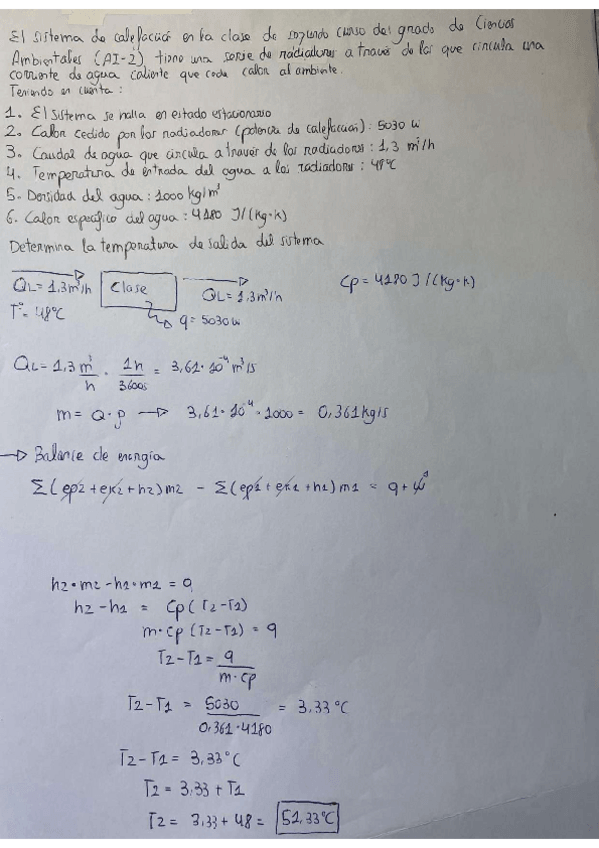 El sistema de calefacción en la clase de segundo curso del grado de Ciencias
Ambientales (AI-2) tiene una serie de radiadores a través de los que circula una
corriente de agua caliente que cede calor al ambiente.
Teniendo en cuenta:
1. El sistema se halla en estado estacionario
2. Calor cedido por los radiadores (potencia de calefacción): 5030 W
3. Caudal de agua que circula a través de los radiadores: 1,3 m³/h
4. Temperatura de entrada del agua a los radiadores: 48°C
5. Densidad del agua: 1000 kg/m³
6. Calor específico del agua: 4180 J/(kg·K)
Determina la temperatura de salida del sistema
QL = 1,3 m³/h Clase QL = 1,3 m³/h Cp = 4180 J/(kg·K)
T° = 48°C q = 5030 W
QL = 1,3 m³/h · 1h/3600s = 3,61·10⁻⁴ m³/s
m = Q·ρ → 3,61·10⁻⁴·1000 = 0,361 kg/s
→ Balance de energía
Σ(ep2 + ek2 + h2) m2 - Σ(ep1 + ek1 + h1) m1 = q + w⁰
h2·m2 - h1·m1 = q
h2 - h1 = Cp (T2-T1)
m·cp (T2-T1) = q
T2-T1 = q/m·cp
T2-T1 = 5030/0,361·4180 = 3,33°C
T2-T1 = 3,33°C
T2 = 3,33 + T1
T2 = 3,33 + 48 = 51,33°C